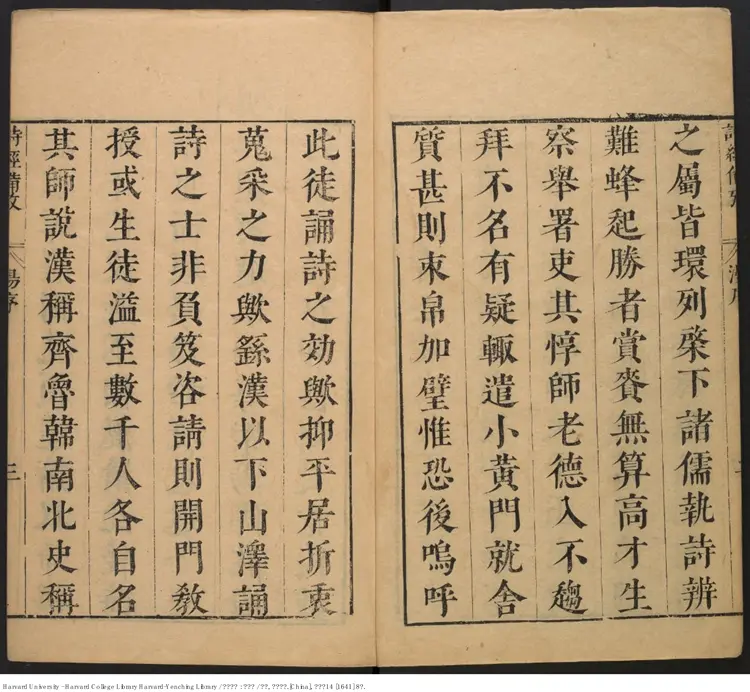 之屬皆環列榮下諸儒執詩辨
難蜂起勝者賞賚無算高才生
察舉署吏其惇師老德入不趨
拜不名有疑輒遣小黃門就舍
質甚則束帛加璧惟恐後嗚呼
此徒誦詩之効歟抑平居折衷
蒐采之力歟繇漢以下山澤誦
詩之士非負笈咨請則開門教
授或生徒溢至數千人各自名
其師說漢稱齊魯韓南北史稱
詩經備攷
湯序
三
Harvard University - Harvard College Library Harvard-Yenching Library / ???? : ??? / ??, ????.[China], ???14 [1641] 8?.